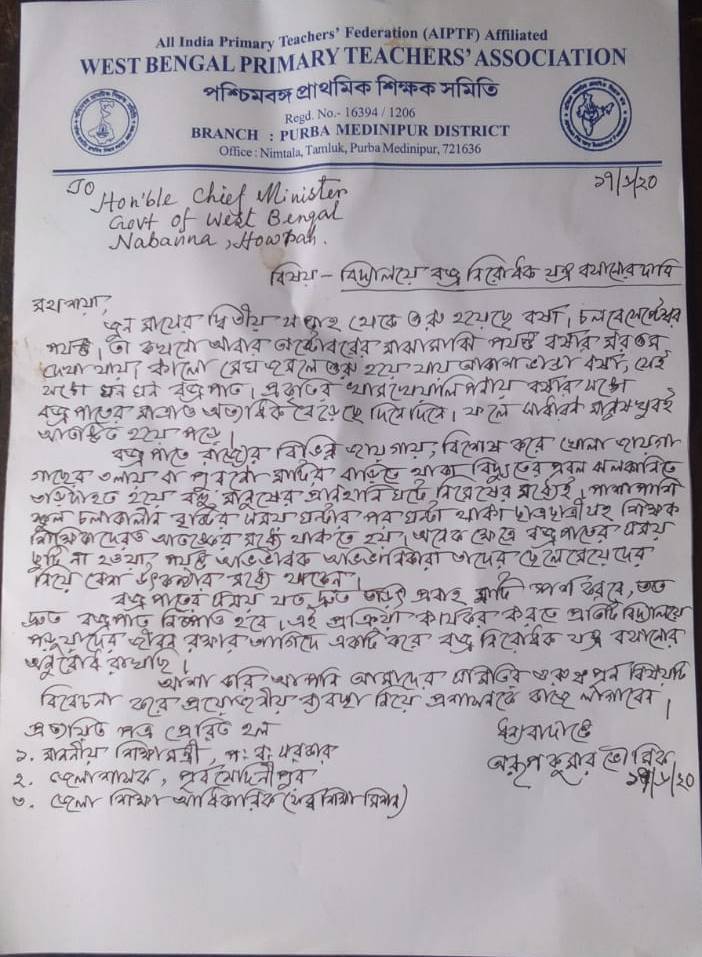 All India Primary Teachers' Federation (AIPTF) Affiliated
WEST BENGAL PRIMARY TEACHERS' ASSOCIATION
পশ্চিমবঙ্গ প্রাথমিক শিক্ষক সমিতি
Regd. No.- 16394 / 1206
BRANCH : PURBA MEDINIPUR DISTRICT
Office : Nimtala, Tamluk, Purba Medinipur, 721636
To
Hon'ble Chief Minister
Govt of West Bengal
Nabanna, Howrah.
বিষয় - বিদ্যালয়ে বজ্র নিরোধক যন্ত্র বসানোর দাবি
মহাশয়া,
জুন মাসের দ্বিতীয় সপ্তাহ থেকে শুরু হয়েছে বর্ষা, চলবে সেপ্টেম্বর
পর্যন্ত, তা কখনো আবার অক্টোবরের মাঝামাঝি পর্যন্ত বর্ষার
দেখা যায়, কালো মেঘ জমলে শুরু হয়ে যায় আকাশ ভাঙা বর্ষা, সেই
সঙ্গে ঘন ঘন বজ্রপাত। প্রকৃতির খামখেয়ালিপনায় বর্ষার সঙ্গে
বজ্রপাতের মাত্রাও অত্যধিক বেড়েছে দিনে দিনে। ফলে সাধারন মানুষ খুবই
আতঙ্কিত হয়ে পড়ে।
বজ্রপাতে রাজ্যের বিভিন্ন জায়গায়, বিশেষ করে খোলা জায়গা
গাছের তলায় বা পুরনো মাটির বাড়িতে থাকা বিদ্যুতের প্রবল ঝলকানিতে
তড়িদাহত হয়ে বহু মানুষের প্রানহানি ঘটে নিমেষের মধ্যেই। পাশাপাশি
স্কুল চলাকালীন বৃষ্টির সময় ঘন্টার পর ঘন্টা থাকা ছাত্রছাত্রী সহ শিক্ষক
শিক্ষিকাদেরও আতঙ্কের মধ্যে থাকতে হয়। অনেক ক্ষেত্রে বজ্রপাতের সময়
ছুটি না হওয়া পর্যন্ত অভিভাবক অভিভাবিকারা তাদের ছেলেমেয়েদের
নিয়ে বেশ উৎকন্ঠার মধ্যে থাকেন।
বজ্রপাতের সময় যত দ্রুত তড়িৎ প্রবাহ মাটি স্পর্শ করবে, তত
দ্রুত বজ্রপাত নিষ্পত্তি হবে। এই প্রক্রিয়া কার্যকর করতে প্রতিটি বিদ্যালয়ে
পড়ুয়াদের জীবন রক্ষার তাগিদে একটি করে বজ্র নিরোধক যন্ত্র বসানোর
অনুরোধ রাখছি।
আশা করি আপনি আমাদের সমিতির গুরুত্বপূর্ন বিষয়টি
বিবেচনা করে প্রয়োজনীয় ব্যবস্থা নিয়ে প্রশাসনকে কাজে লাগাবেন।
প্রত্যায়িত পত্র প্রেরিত হল
ধন্যবাদান্তে
১. মাননীয় শিক্ষামন্ত্রী, প: ব: সরকার
অরূপ কুমার ভৌমিক
২. জেলাশাসক, পূর্ব মেদিনীপুর
৩. জেলা শিক্ষা আধিকারিক (সর্ব শিক্ষা মিশন)